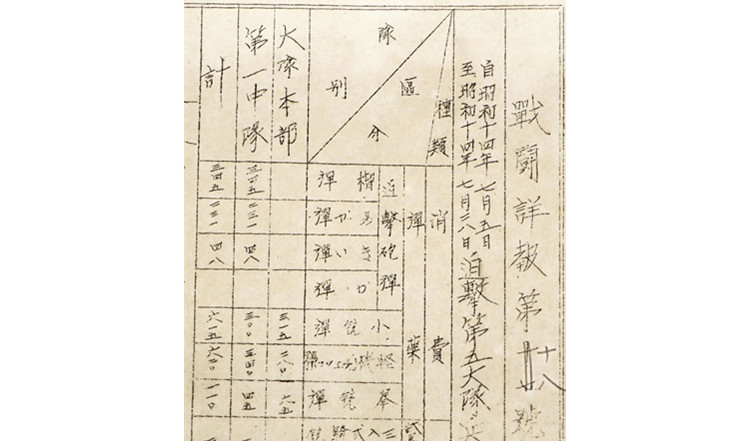 戰鬪詳報第十八號
自昭和十四年七月五日
至昭和十四年七月二八日
迫擊第五大隊
種類
區分
隊別
消費
彈藥
迫擊砲彈
榴彈
あか彈
きい彈
か彈
小銃彈
輕機
拳銃彈
大隊本部
三一五
二八〇
六五
第一中隊
三四五
二三一
四八
三〇〇
三四〇
四五
計
三四五
二三一
四八
六一五
六二〇
一一〇